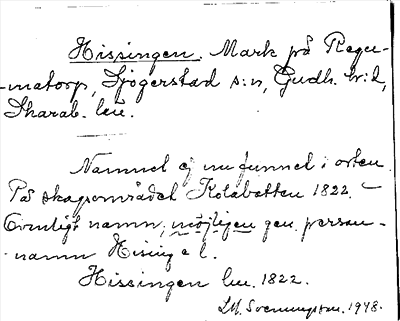 Hissingen. Mark på Regu-
-matorp, Sjogerstad s:n, Gudh. h:d,
Skarab. län.
Namnet ej nu funnet i orten.
På skogsområdet Kolabotten 1822.
Ovanligt namn, möjligen gen. person-
namn Hising el.
Hissingen lm. 1822.
J.M. Svenungsson. 1948.